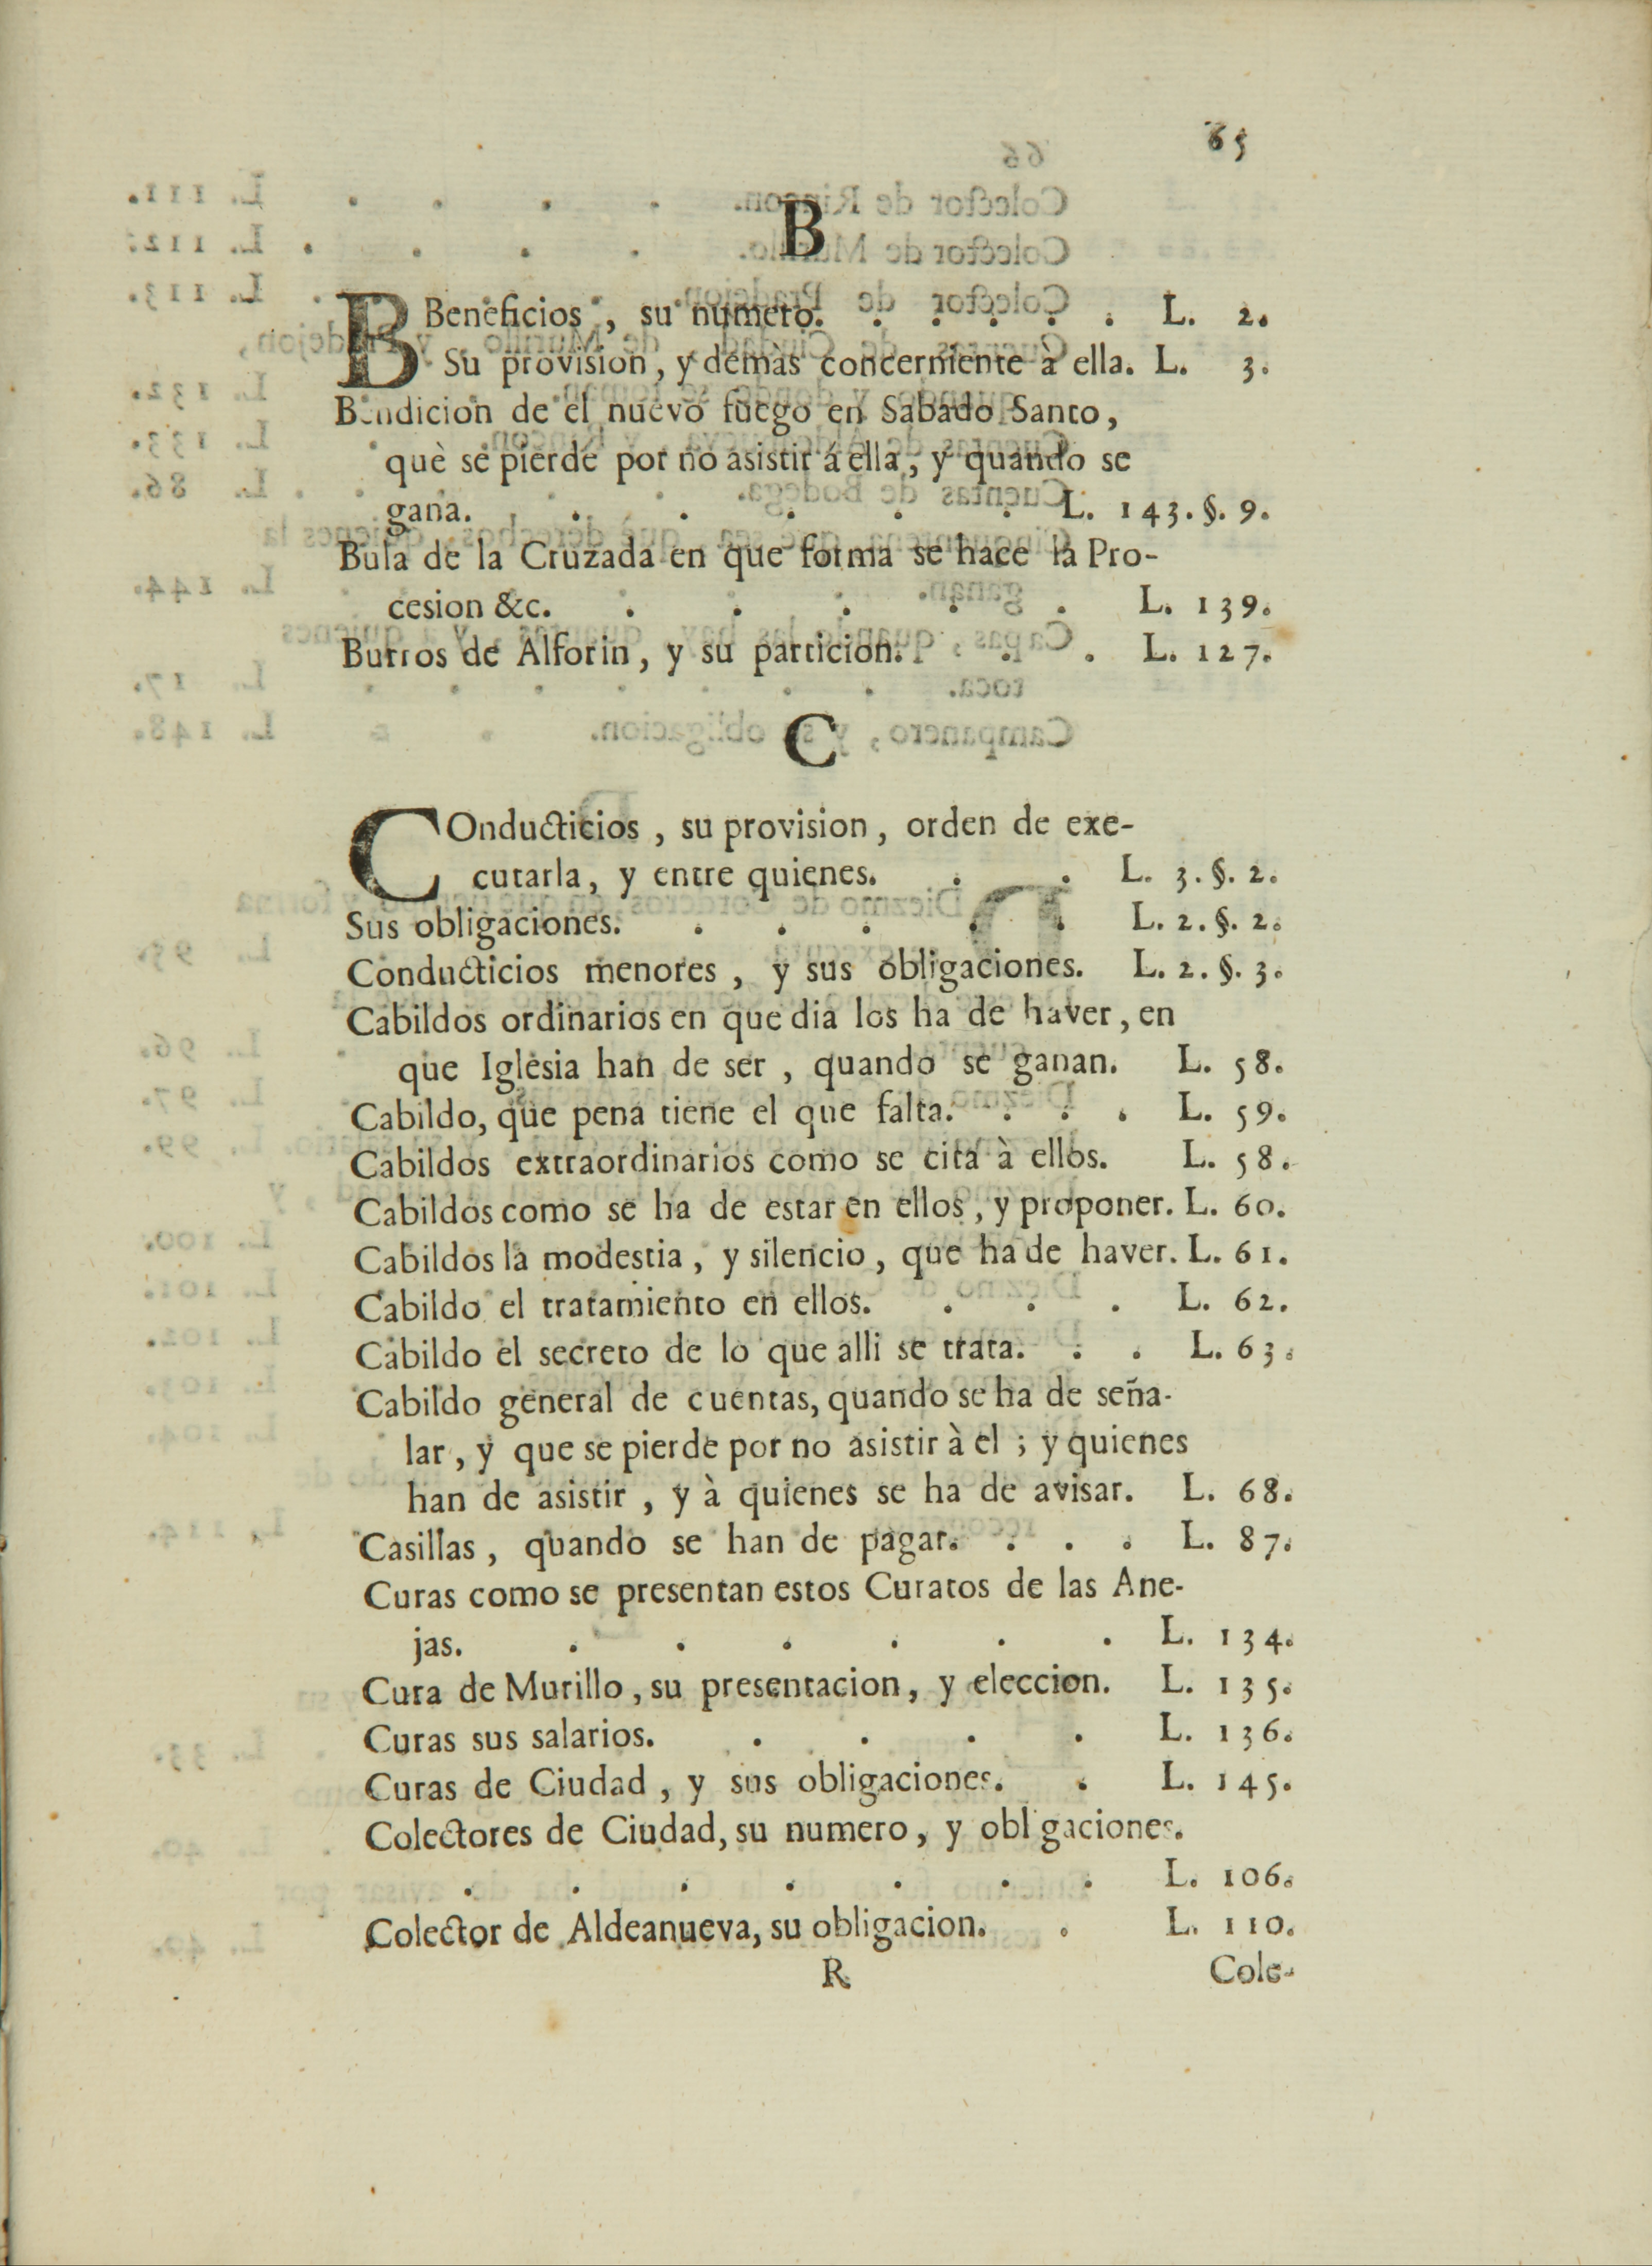 65
B
BBeneficios, su numero. . . . . . L. 2.
Su provision, y demàs concerniente à ella. L. 3.
Bendicion de el nuevo fuego en Sabado Santo,
què se pierde por no asistir á ella, y quando se
gana. . . . . . . L. 143. §. 9.
Bula de la Cruzada en que forma se hace la Pro-
cesion &c. . . . . . L. 139.
Burros de Alforin, y su particion. . . L. 127.
C
COnducticios, su provision, orden de exe-
cutarla, y entre quienes. . . L. 3. §. 2.
Sus obligaciones. . . . . . L. 2. §. 2.
Conducticios menores, y sus obligaciones. L. 2. §. 3.
Cabildos ordinarios en que dia los ha de haver, en
que Iglesia han de ser, quando se ganan. L. 58.
Cabildo, que pena tiene el que falta. . . . L. 59.
Cabildos extraordinarios como se cita à ellos. L. 58.
Cabildos como se ha de estar en ellos, y proponer. L. 60.
Cabildos la modestia, y silencio, que ha de haver. L. 61.
Cabildo el tratamiento en ellos. . . . L. 62.
Cabildo el secreto de lo que alli se trata. . . L. 63.
Cabildo general de cuentas, quando se ha de seña-
lar, y que se pierde por no asistir à el; y quienes
han de asistir, y à quienes se ha de avisar. L. 68.
Casillas, quando se han de pagar. . . . L. 87.
Curas como se presentan estos Curatos de las Ane-
jas. . . . . . . L. 134.
Cura de Murillo, su presentacion, y eleccion. L. 135.
Curas sus salarios. . . . . L. 136.
Curas de Ciudad, y sus obligaciones. . L. 145.
Colectores de Ciudad, su numero, y obl gaciones.
. . . . . . . L. 106.
Colector de Aldeanueva, su obligacion. . L. 110.
R Cole-